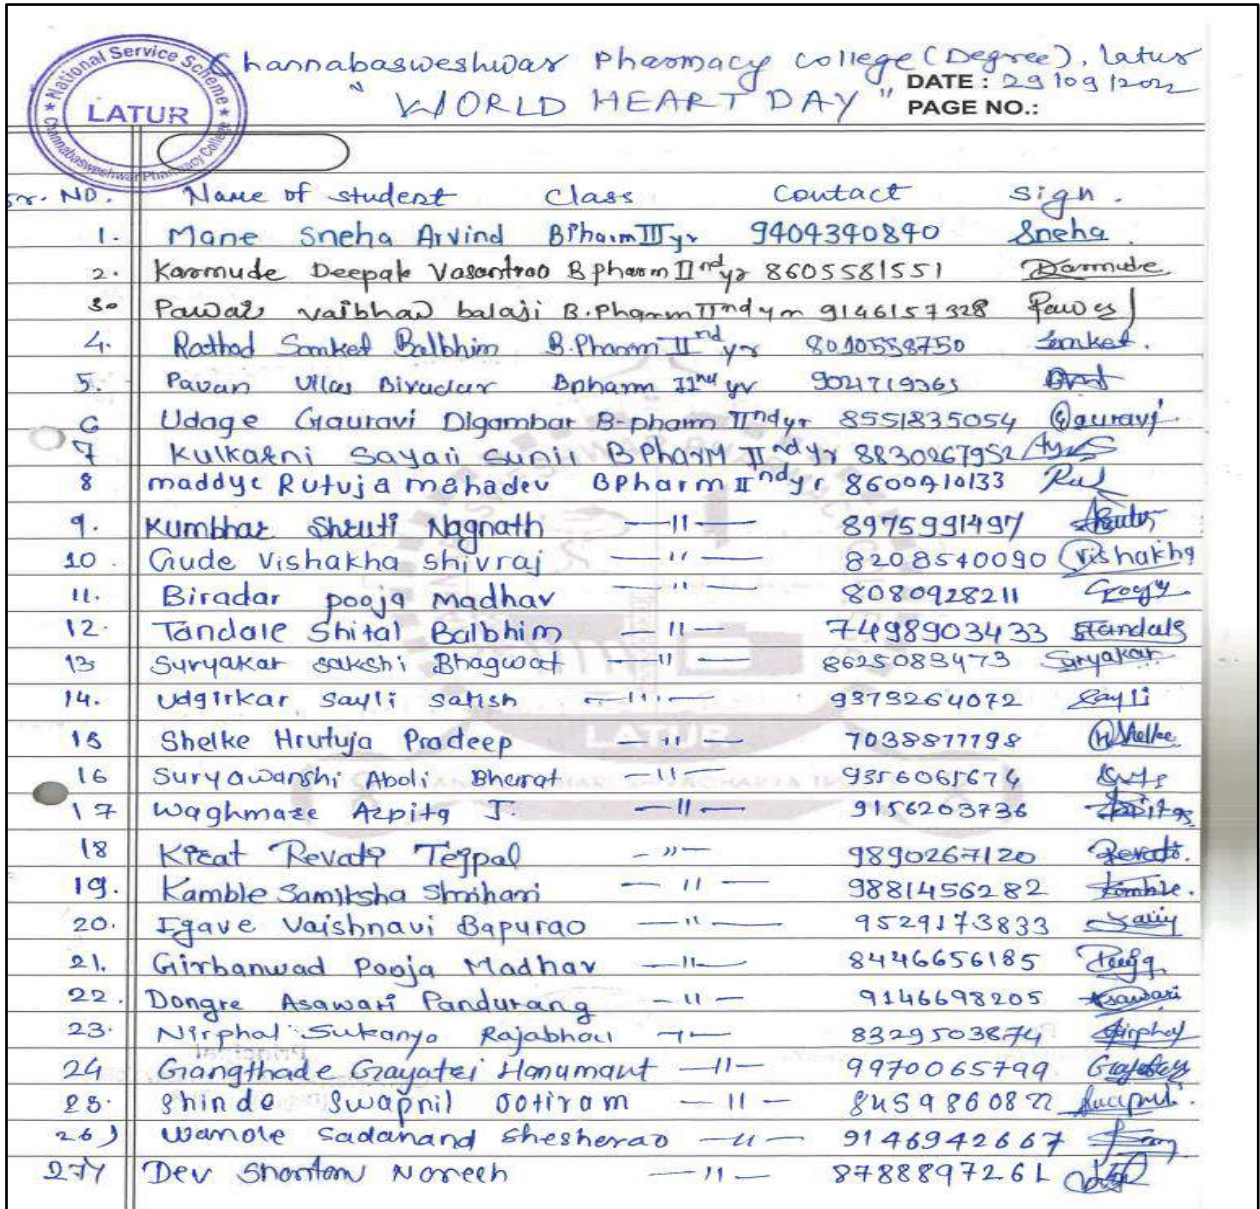 Channabasweshwar Pharmacy College (Degree), Latur
" WORLD HEART DAY "
DATE : 29/09/2022
PAGE NO.:
National Service Scheme
LATUR
Channabasweshwar Pharmacy College
Sr. NO. Name of student Class Contact Sign.
1. Mane Sneha Arvind BPharm III yr 9404340840 Sneha
2. Karmude Deepak Vasantrao B pharm IInd yr 8605581551
3. Pawar vaibhav balaji B.Pharm IInd yr 9146157328 Pawar
4. Rathod Sanket Balbhim B.Pharm IInd yr 8010558750 Sanket.
5. Pavan Vilas Biradar Bpharm IInd yr 9021719365
6 Udage Gauravi Digambar B-pharm IInd yr 8551835054 Gauravi
7 Kulkarni Sayali Sunil BPharm IInd yr 8830267952
8 maddye Rutuja mahadev BPharm IInd yr 8600910133
9. Kumbhar Shruti Nagnath —11— 8975991497
10. Gude Vishakha Shivraj —11— 8208540090 Vishakha
11. Biradar pooja Madhav —11— 8080928211
12. Tandale Shital Balbhim —11— 7498903433 Standale
13 Suryakar sakshi Bhagwat —11— 8625083473 Suryakar
14. Udgirkar Sayli Satish —11— 9373264072 Sayli
15 Shelke Hrutuja Pradeep —11— 7038877798 HShelke
16 Suryawanshi Aboli Bharat —11— 9356065674
17 Waghmare Arpita J. —11— 9156203736
18 Kirat Revati Tejpal —11— 9890267120 Revati.
19. Kamble Samiksha Shrihari —11— 9881456282 Kamble.
20. Igave Vaishnavi Bapurao —11— 9529173833
21. Girbanwad Pooja Madhav —11— 8446656185 Pooja
22. Dongre Asawari Pandurang —11— 9146698205 Asawari
23. Nirphal Sukanya Rajabhau —11— 8329503874 Nirphal
24 Gangthade Gayatri Hanumant —11— 9970065799
25. Shinde Swapnil Jotiram —11— 8459860822 Swapnil.
26) Wanole Sadanand Shesherao —11— 9146942667
27) Dev Shantanu Naresh —11— 8788897261